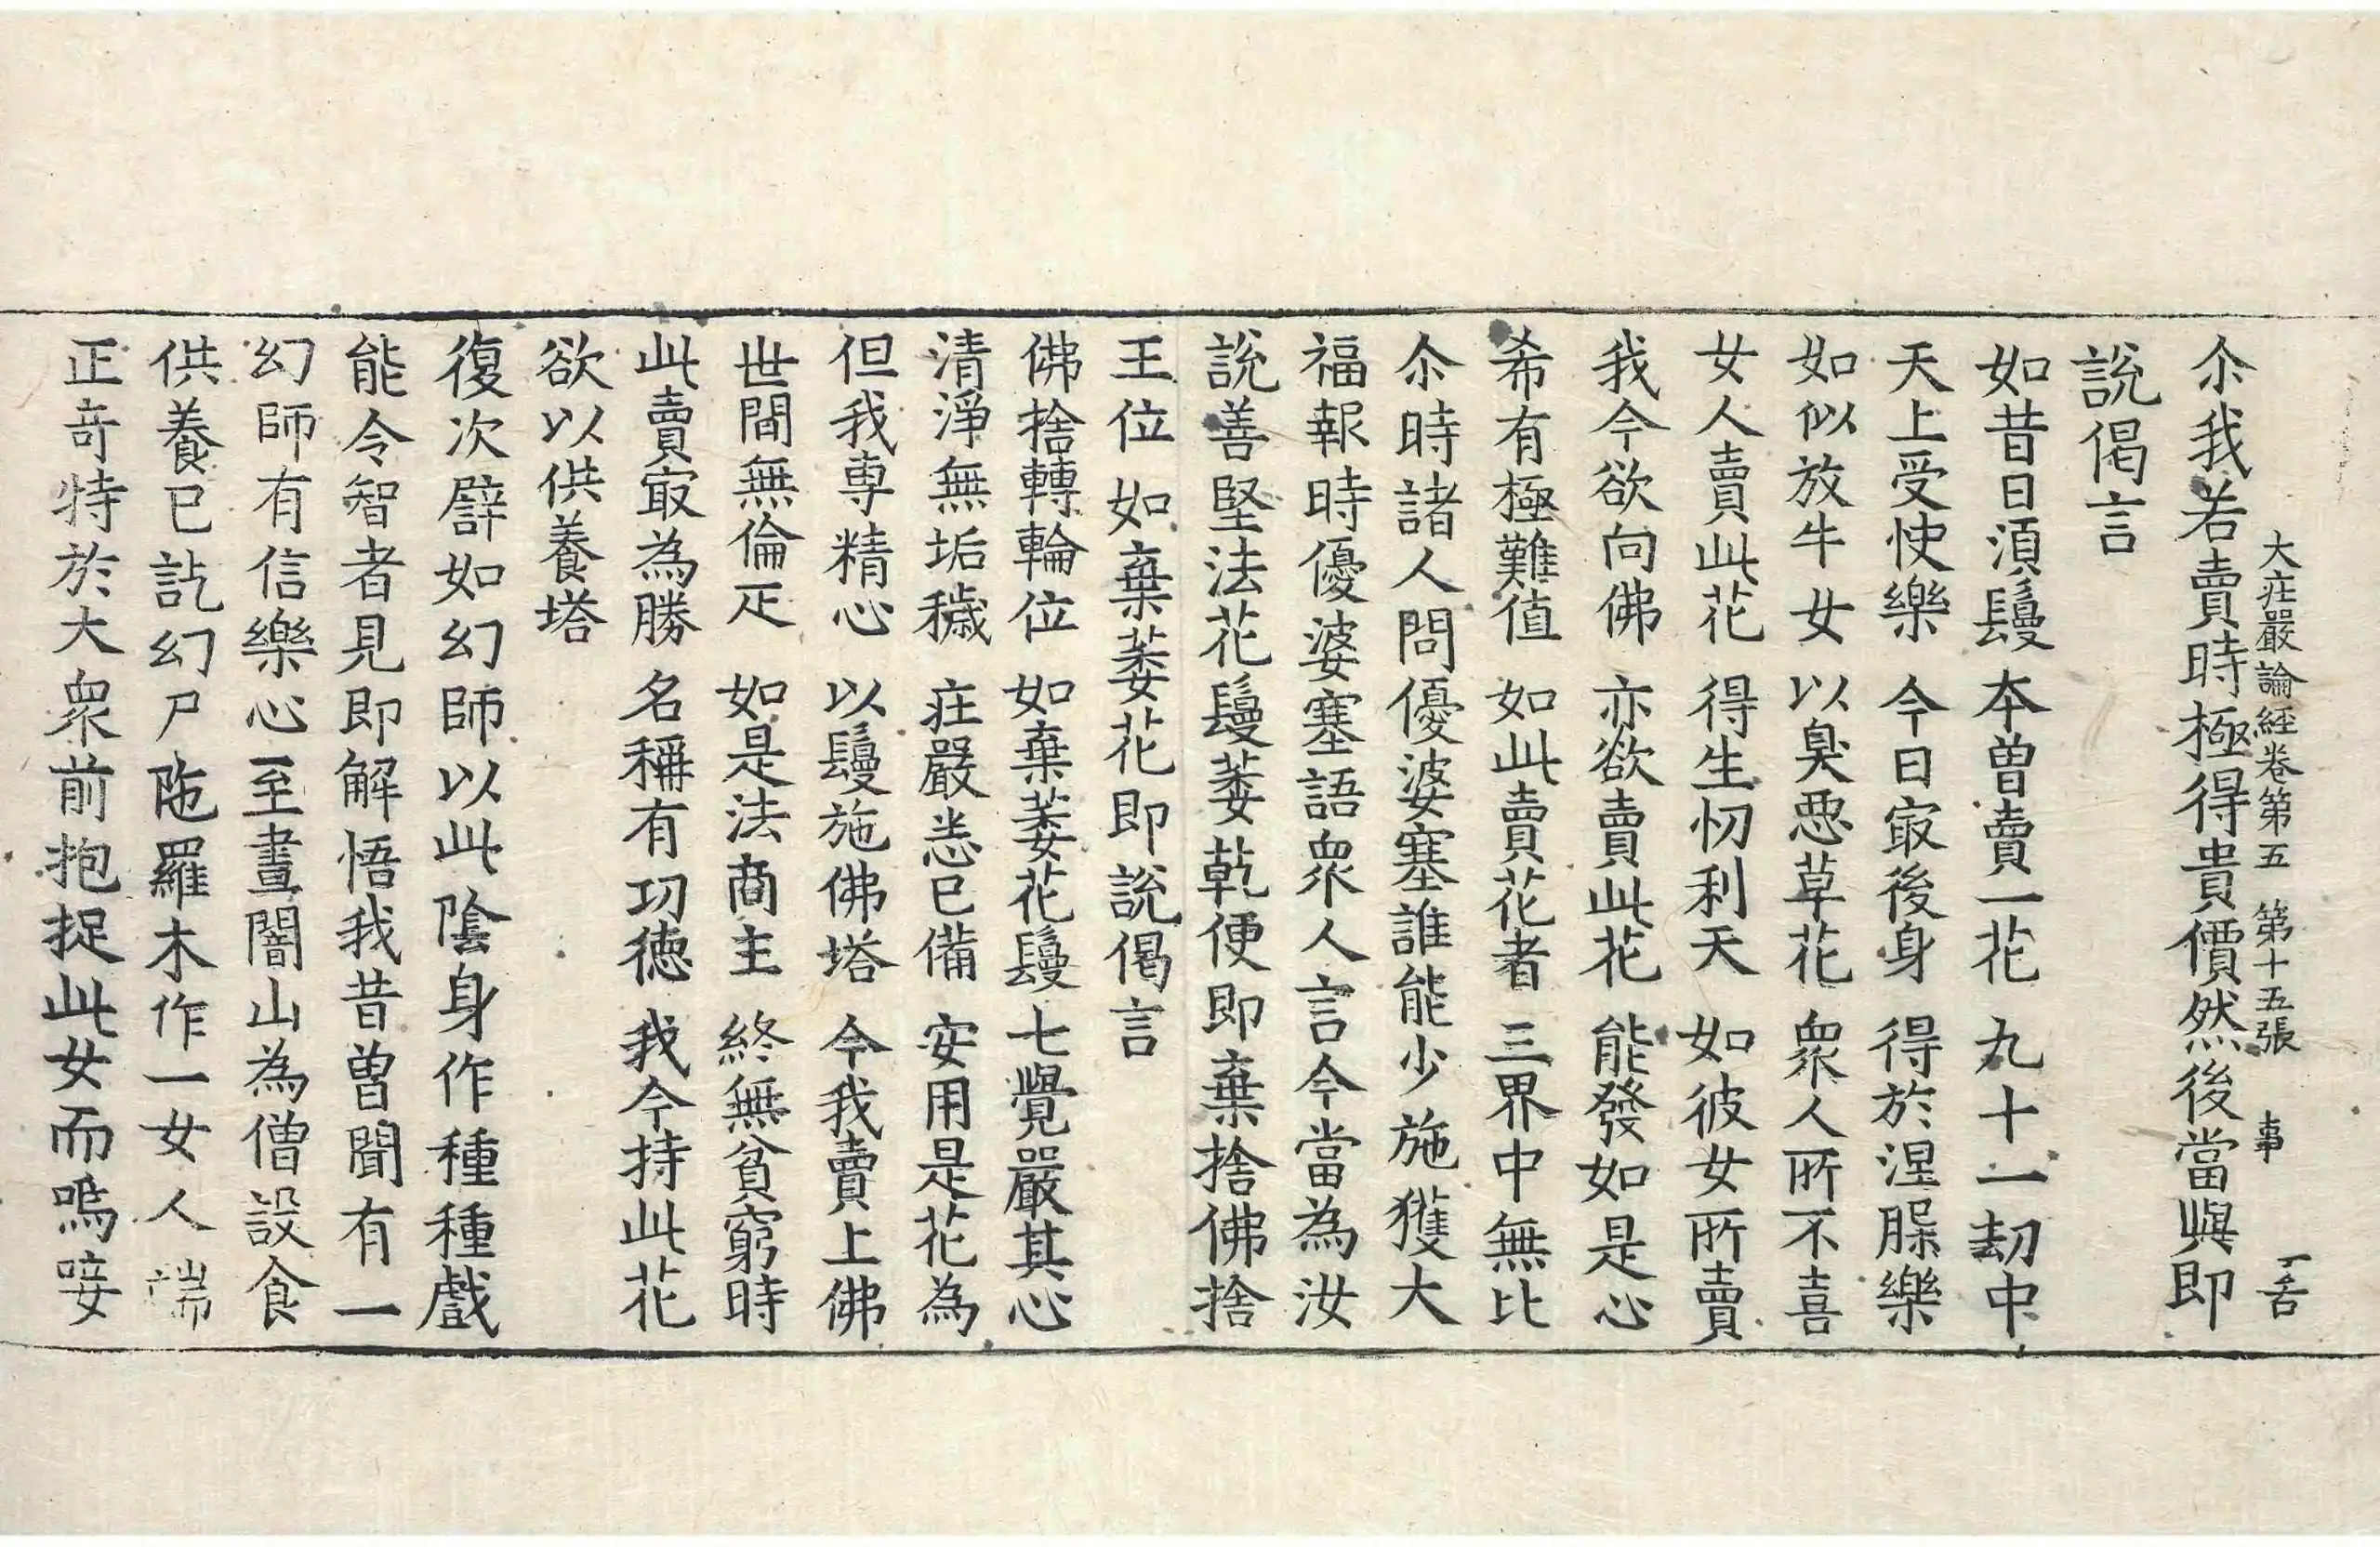 大庄嚴論経卷第五 第十五張 事
尒我若賣時極得貴價然後當與即
說偈言
如昔日湏鬘 本曽賣一花 九十一劫中
天上受快樂 今日㝡後身 得於涅槃樂
如似放牛女 以臭惡草花 衆人所不喜
女人賣此花 得生忉利天 如彼女所賣
我今欲向佛 亦欲賣此花 能發如是心
希有極難值 如此賣花者 三界中無比
尒時諸人問優婆塞誰能少施獲大
福報時優婆塞語衆人言今當為汝
說善堅法花鬘萎乾便即棄捨佛捨
王位如棄萎花即說偈言
佛捨轉輪位 如棄萎花鬘 七覺嚴其心
清淨無垢穢 庄嚴悉已備 安用是花為
但我専精心 以鬘施佛塔 今我賣上佛
世間無倫疋 如是法商主 終無貧窮時
此賣㝡為勝 名稱有功德 我今持此花
欲以供養塔
復次譬如幻師以此陰身作種種戲
能令智者見即解悟我昔曽聞有一
幻師有信樂心至晝闇山為僧設食
供養已訖幻尸陁羅木作一女人端
正竒特於大衆前抱捉此女而嗚唼